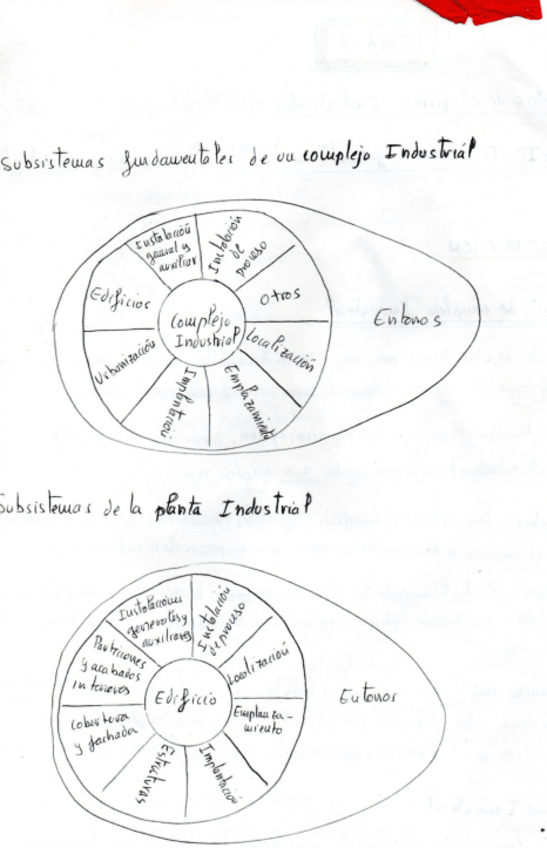 Subsistemas fundamentales de un complejo Industrial
Instalación
general y
auxiliar
Instalación
de
proceso
Edificios
Otros
Complejo
Industrial
Entornos
Urbanización
Localización
Implantación
Emplazamiento
Subsistemas de la planta Industrial
Instalaciones
generales y
auxiliares
Instalación
de proceso
Particiones
y acabados
interiores
Localización
Edificio
Entornos
Cobertura
y fachada
Emplaza-
miento
Estructuras
Implantación